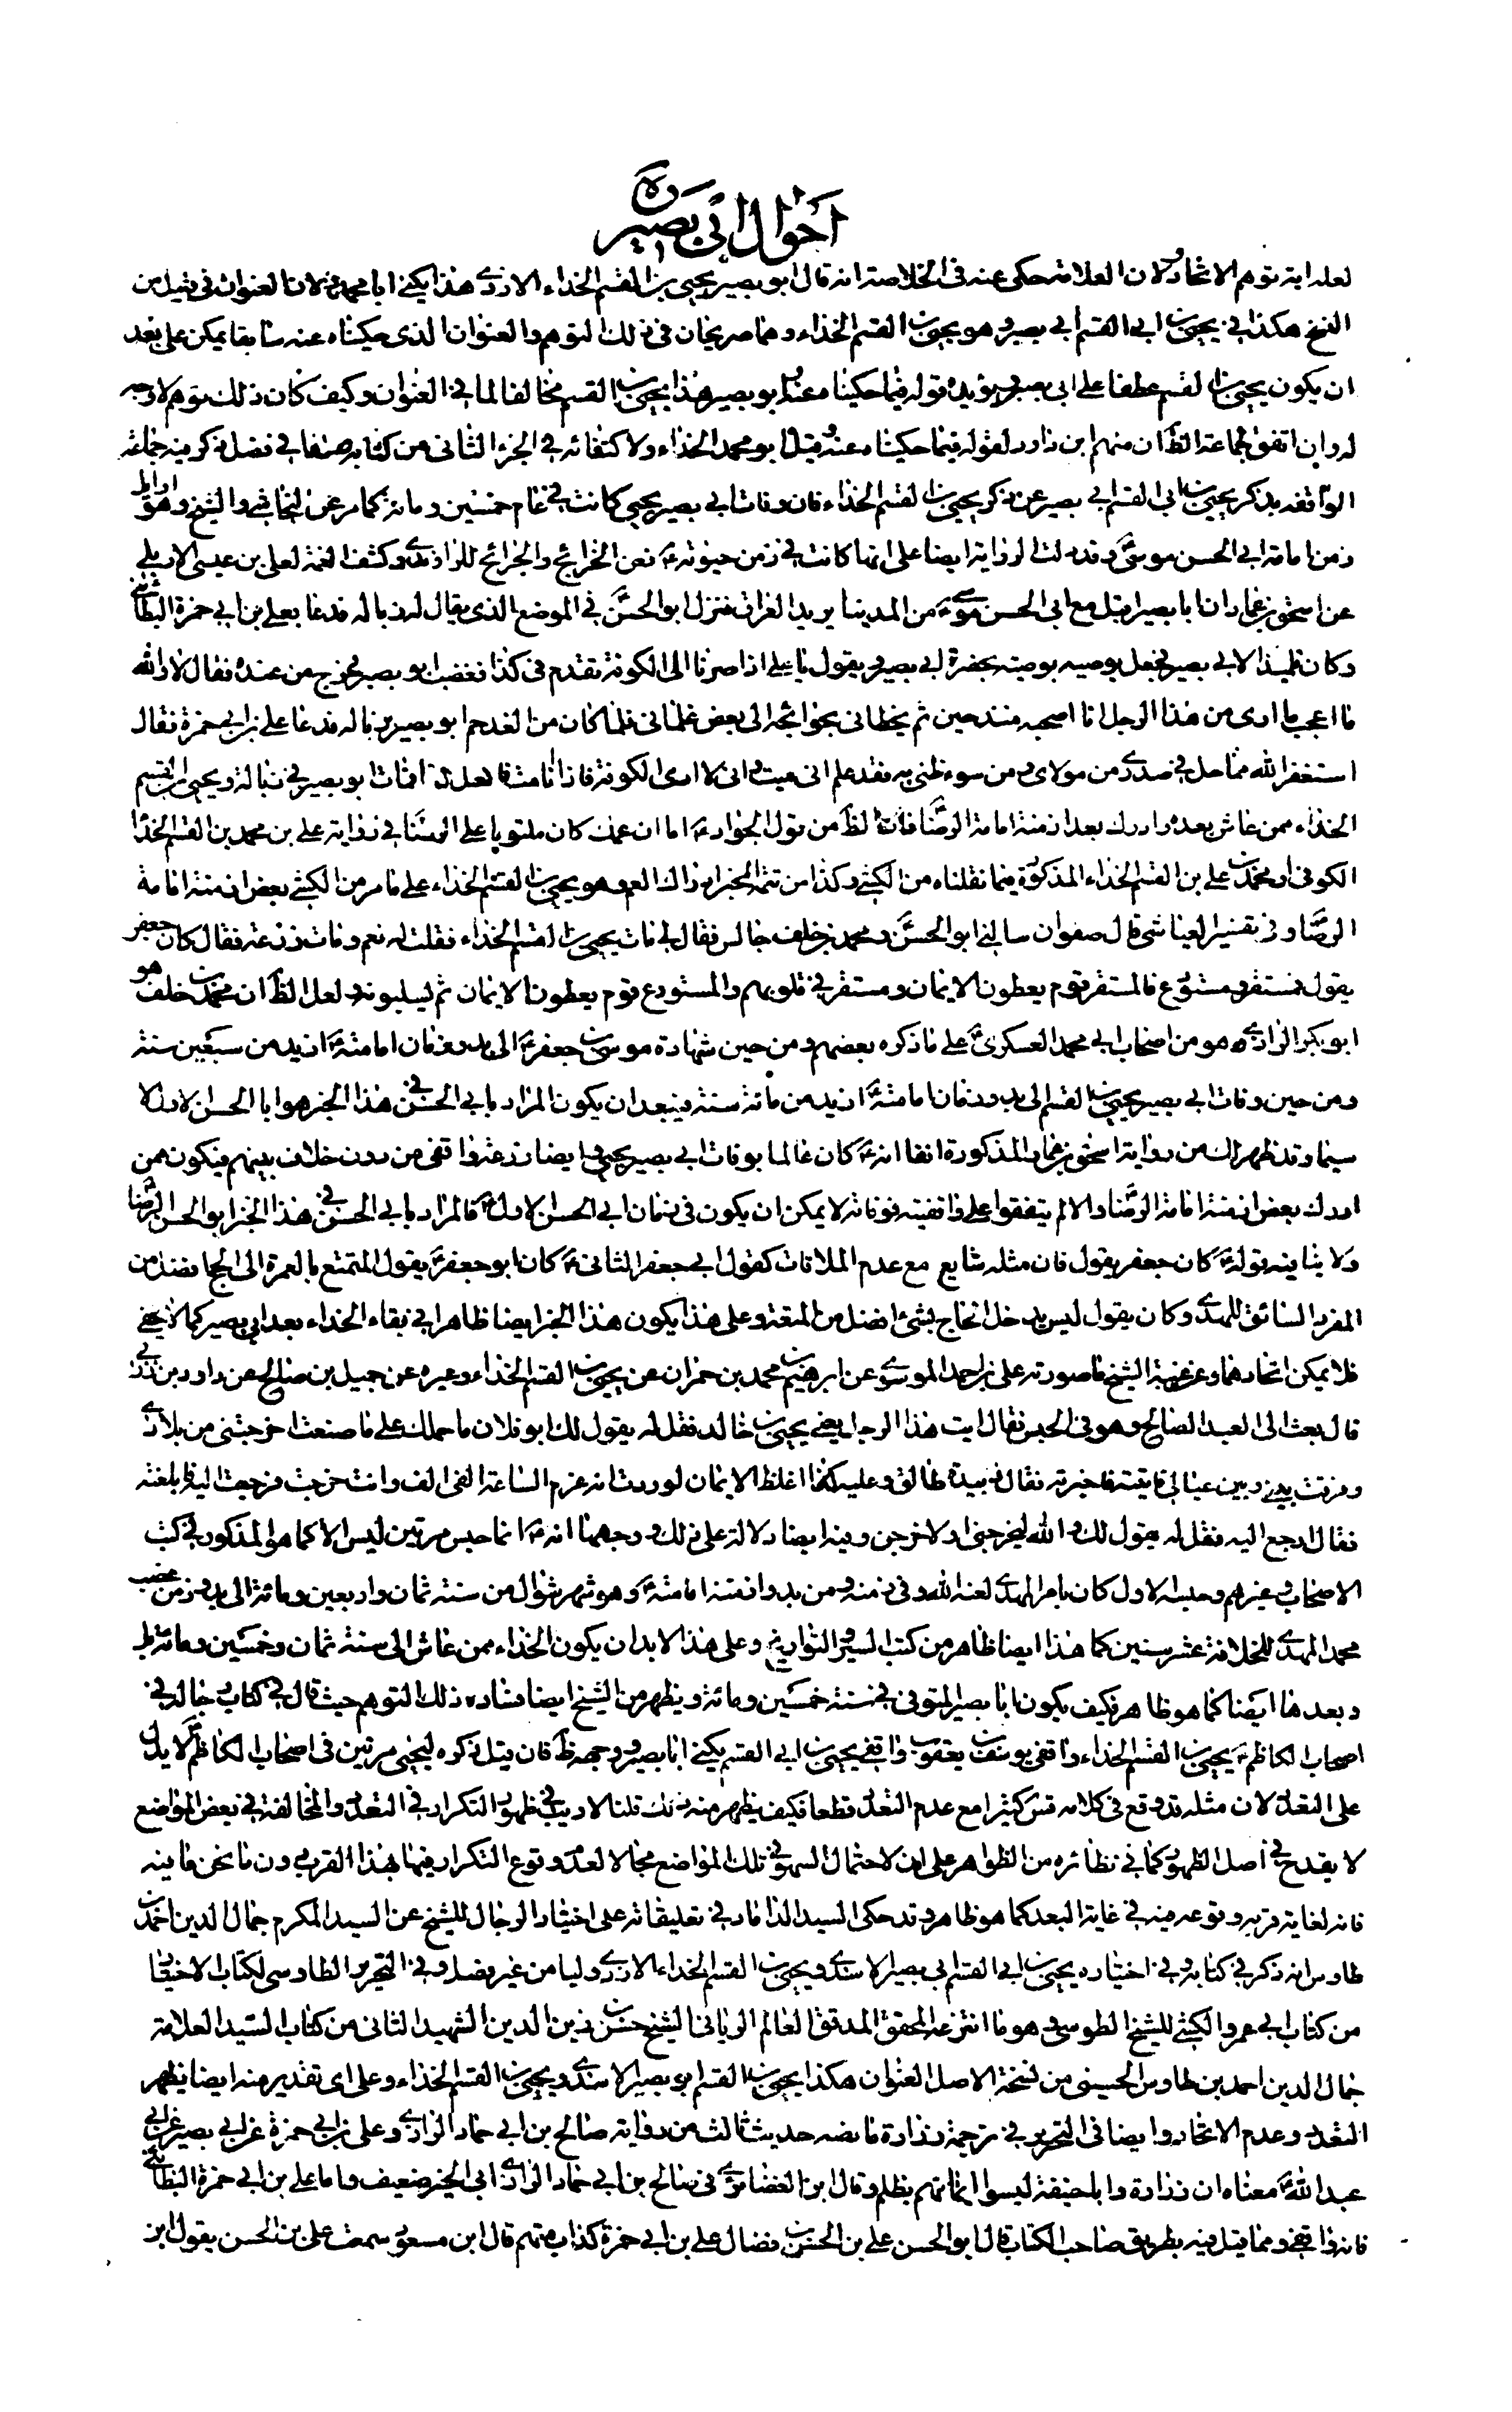 احوال ابی بصیر ره
لعلة انه توهم الاتحاد لان العلامة حكى عنه فى الخلاصة انه قال ابو بصير يحيى بن القسم الحذاء الازدى هذا يكنى ابا محمد ولان العنوان فى قليل من
النسخ هكذا فى يحيى بن ابى القسم ابى بصير وهو يحيى بن القسم الحذاء وهما صريحان فى ذلك التوهم والعنوان الذى حكيناه عنه سابقا يمكن على بعد
ان يكون يحيى بن القسم عطفا على ابى بصير ويؤيده قوله فيما حكينا عنه ابو بصير هذا يحيى بن القسم مخالفا لما فى العنوان وكيف كان ذلك توهم لا وجه
له وان اتفق لجماعة الظ ان منهم ابن داود لقوله فيما حكيناه عنه وقيل ابو محمد الحذاء ولاكتفائه فى الجزء الثانى من كتابه صنفا فى فصل ذكر فيه جماعة
الواقفه بذكر يحيى بن ابى القسم ابى بصير عن ذكر يحيى بن القسم الحذاء فان وفات ابى بصير يحيى كانت فى عام خمسين ومائة كما مر عن النجاشى والشيخ وهو اوايل
زمن امامة ابى الحسن موسى ع وقد دلت الرواية ايضا على انها كانت فى زمن حيوته ع فعن الخرايج والجرائح للراوندى وكشف الغمة لعلى بن عيسى الاربلى
عن اسحق بن عمار ان ابا بصير اقبل مع ابى الحسن موسى ع من المدينة يريد العراق فنزل ابو الحسن ع فى الموضع الذى يقال له زبالة فدعا بعلى بن ابى حمزة البطائنى
وكان تلميذا لابى بصير فجعل يوصيه بوصيته بحضرة ابى بصير ويقول يا على اذا صرنا الى الكوفة تقدم فى كذا فغضب ابو بصير فخرج من عنده فقال لا والله
ما اعجب ما ارى من هذا الرجل انا اصحبه منذ حين ثم يخطانى بحوائجه الى بعض غلمانى فلما كان من الغد حم ابو بصير بزبالة فدعا على بن ابى حمزة فقال
استغفر الله مما حل فى صدرى من مولاى و من سوء ظنى به فقد علم انى ميت وانى لا ارى الكوفة فاذا انا مت فافعل كذا فمات ابو بصير فى زبالة ويحيى بن القسم
الحذاء ممن عاش بعده وادرك بعد ازمنة امامة الرضا ع فانه الظ من قول الجواد ع اما ان عمك كان ملتويا على الرضا ع فى رواية على بن محمد بن القسم الحذاء
الكوفى او محمد بن على بن القسم الحذاء المذكورة فيما نقلناه من الكشى وكذا من تتمة الخبر ان ذاك العم وهو يحيى بن القسم الحذاء على ما مر من الكشى بعض ازمنة امامة
الرضا ع وفى تفسير العياشى قال صفوان سالنى ابو الحسن ع ومحمد بن خلف جالس فقال لى مات يحيى بن القسم الحذاء فقلت له نعم ومات زرعة فقال كان جعفر
يقول فمستقر ومستودع فالمستقر قوم يعطون الايمان ومستقر فى قلوبهم والمستودع قوم يعطون الايمان ثم يسلبونه ولعل الظ ان محمد بن خلف هو
ابو بكر الرازى وهو من اصحاب ابى محمد العسكرى ع على ما ذكره بعضهم ومن حين شهادة موسى بن جعفر ع الى بدو زمان امامته ع ازيد من سبعين سنة
ومن حين وفات ابى بصير يحيى بن القسم الى بدو زمان امامته ع ازيد من مائة سنة فيبعد ان يكون المراد بابى الحسن ع فى هذا الخبر هو ابا الحسن الاول لا
سيما وقد ظهر لك من رواية اسحق بن عمار المذكورة انفا انه ع كان عالما بوفات ابى بصير يحيى وايضا زرعة واقفى من دون خلاف بينهم فيكون ممن
ادرك بعض ازمنة امامة الرضا ع والا لم يتفقوا على واقفيته فوفاته لا يمكن ان يكون فى زمان ابى الحسن الاول ع فالمراد بابى الحسن ع فى هذا الخبر ابو الحسن الرضا ع
ولا ينافيه قوله ع كان جعفر يقول فان مثله شايع مع عدم الملاقات كقول ابى جعفر الثانى ع كان ابو جعفر ع يقول المتمتع بالعمرة الى الحج افضل من
المفرد السائق للهدى وكان يقول ليس يدخل الحاج بشئ افضل من المتعة وعلى هذا يكون هذا الخبر ايضا ظاهرا فى بقاء الحذاء بعد ابى بصير كما لا يخفى
فلا يمكن اتحادهما وعن غيبة الشيخ ما صورته على بن احمد الموسوى عن ابرهيم بن محمد بن حمران عن يحيى بن القسم الحذاء وغيره عن جميل بن صالح عن داود بن زربى
قال بعث الى العبد الصالح وهو فى الحبس فقال ايت هذا الرجل يعنى يحيى بن خالد فقل له يقول لك ابو فلان ما حملك على ما صنعت اخرجتنى من بلادى
وفرقت بينى وبين عيالى فاتيته فاخبرته فقال زبيدة طالق وعليه كذا اغلظ الايمان لوددت انه غرم الساعة الفى الف وانت خرجت فرجعت اليه فابلغته
فقال ارجع اليه فقل له يقول لك والله ليخرجنى او لاخرجن وفيه ايضا دلالة على ذلك ووجهها انه ع انما حبس مرتين ليس الا كما هو المذكور فى كتب
الاصحاب وغيرهم وحبسه الاول كان بامر المهدى لعنه الله وفى زمنه ومن بدو ازمنة امامته ع وهو شهر شوال من سنة ثمان واربعين ومائة الى بدو زمن غصب
محمد المهدى للخلافة عشر سنين كما هذا ايضا ظاهر من كتب السير والتواريخ وعلى هذا لابد ان يكون الحذاء ممن عاش الى سنة ثمان وخمسين ومائة بل
وبعدها ايضا كما هو ظاهر فكيف يكون ابا بصير المتوفى فى سنة خمسين ومائة ويظهر من الشيخ ايضا فساد ذلك التوهم حيث قال فى كتاب رجاله فى
اصحاب الكاظم ع يحيى بن القسم الحذاء واقفى يوسف بن يعقوب واقفى يحيى بن ابى القسم يكنى ابا بصير ووجهه ظ فان قيل ذكره ليحيى مرتين فى اصحاب الكاظم ع لا يدل
على التعدد لان مثله قد وقع فى كلامه قس كثيرا مع عدم التعدد قطعا فكيف يظهر منه ذلك قلنا لا ريب فى ظهور التكرار فى التعدد والمخالفة فى بعض المواضع
لا يقدح فى اصل الظهور كما فى نظائره من الظواهر على ان لاحتمال السهو فى تلك المواضع مجالا لعدم وقوع التكرار فيها بهذا القرب دون ما نحن فيه
فانه لغاية قربه وقوعه فيه فى غاية البعد كما هو ظاهر وقد حكى السيد الداماد فى تعليقاته على اختيار الرجال للشيخ عن السيد المكرم جمال الدين احمد بن
طاوس انه ذكر فى كتابه وفى اختياره يحيى بن ابى القسم ابى بصير الاسدى ويحيى بن القسم الحذاء الازدى وليا من غير فصل وفى التحرير الطاوسى لكتاب الاختيار
من كتاب ابى عمرو الكشى للشيخ الطوسى وهو ما انتزعه المحقق المدقق العالم الربانى الشيخ حسن بن زين الدين الشهيد الثانى من كتاب السيد العلامة
جمال الدين احمد بن طاوس الحسينى من نسخة الاصل العنوان هكذا يحيى بن القسم ابو بصير الاسدى ويحيى بن القسم الحذاء وعلى اى تقدير منه ايضا يظهر
التعدد وعدم الاتحاد وايضا فى التحرير فى ترجمة زرارة ما نصه حديث ثالث من رواية صالح بن ابى حماد الرازى وعلى بن ابى حمزة عن ابى بصير عن ابى
عبد الله ع معناه ان زرارة وابا حنيفة ليسوا ايمانهم بظلم وقال ابن الغضائرى فى صالح بن ابى حماد الرازى ابى الخير ضعيف واما على بن ابى حمزة البطائنى
فانه واقفى ومما قيل فيه بطريق صاحب الكتاب قال ابو الحسن على بن الحسن بن فضال على بن ابى حمزة كذاب متهم قال ابن مسعود سمعت على بن الحسن يقول ابن